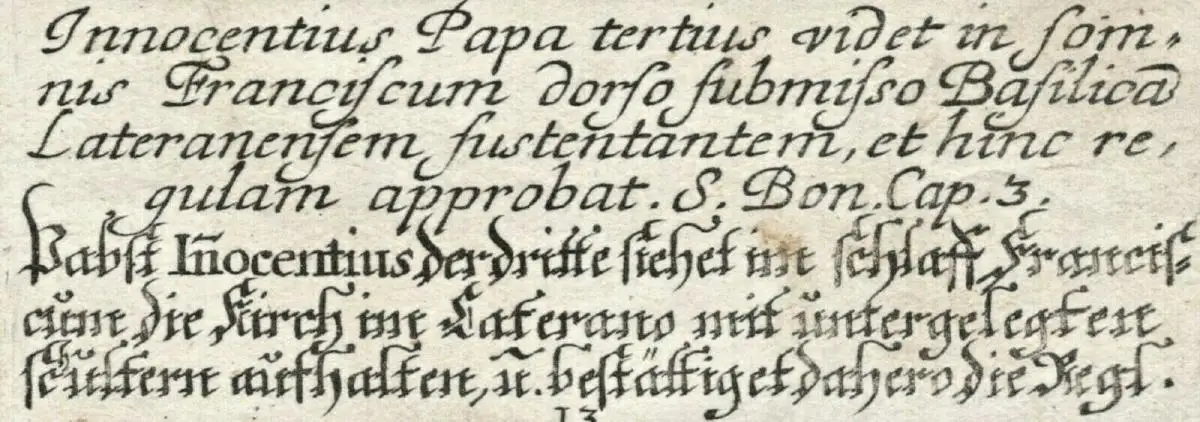 Innocentius Papa tertius videt in ſom-
nis Franciſcum dorſo ſubmiſso Baſilicã
Lateranenſem ſustentantem, et hinc re-
gulam approbat. S. Bon. Cap. 3.
Pabſt Iñocentius der dritte ſiehet im ſchlaff Franciſ-
cum die Kirch im Laterano mit untergelegten
ſchultern aufhalten, ũ. beſtättiget dahero die Regl.
13